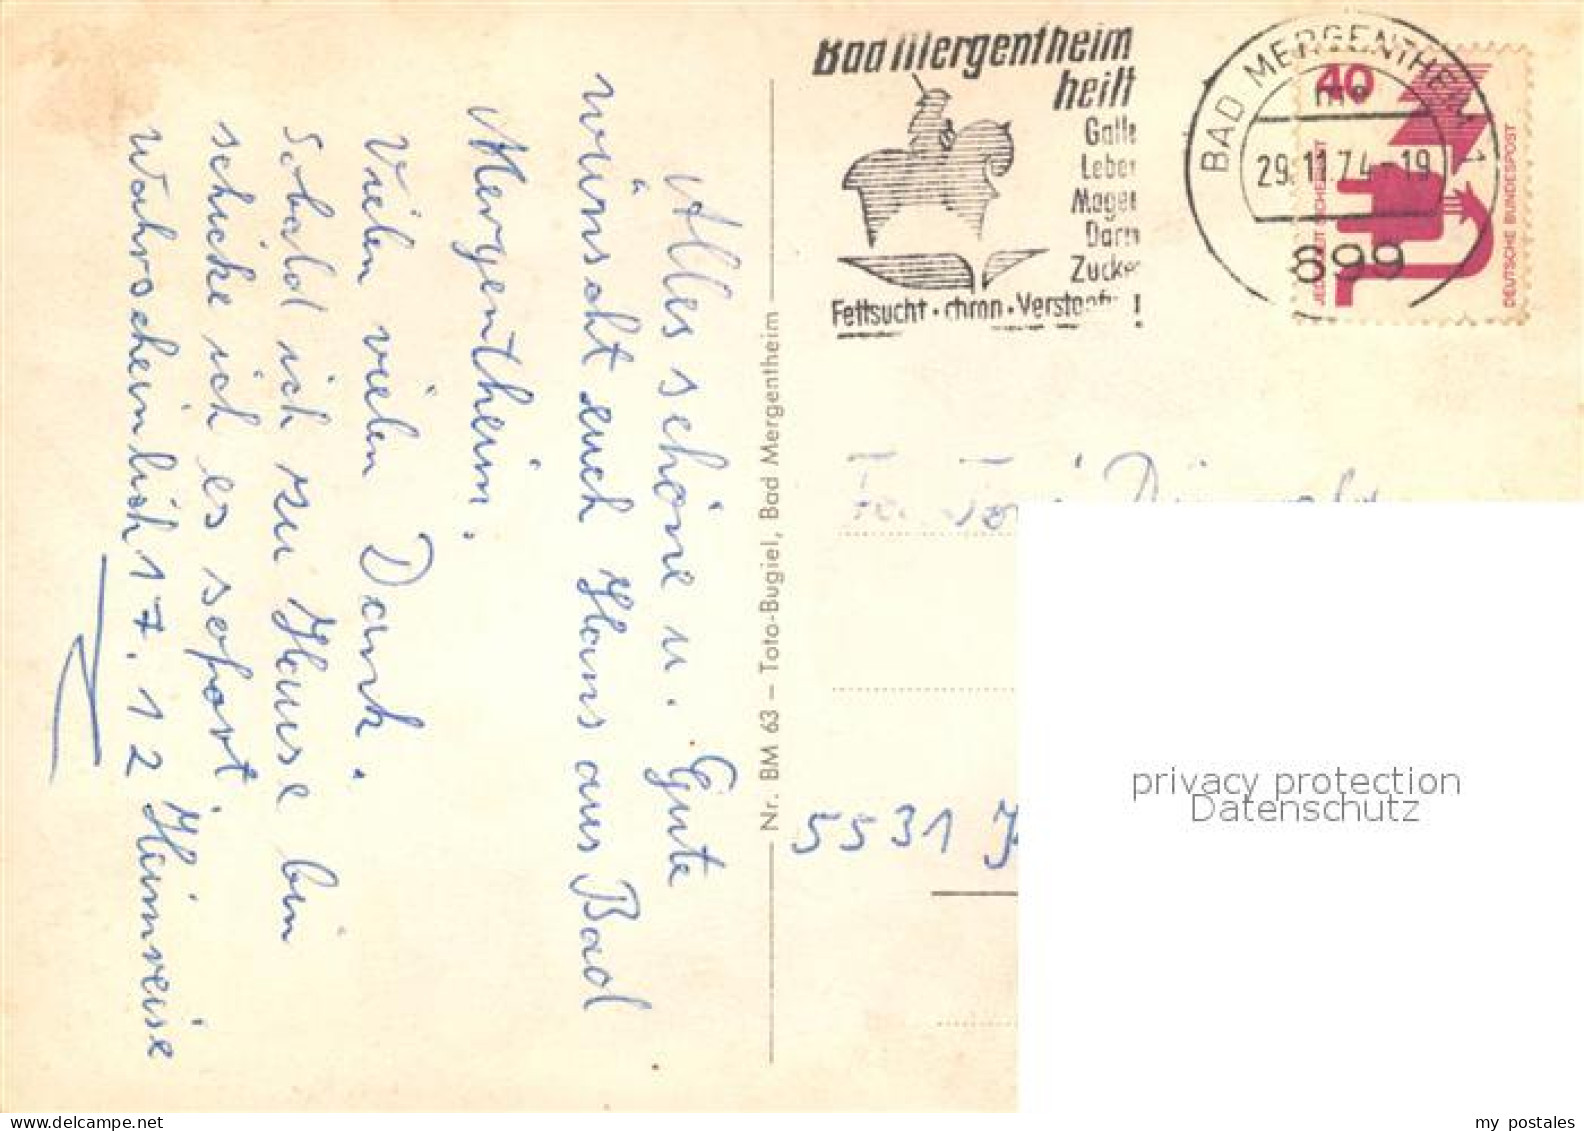 Alles schöne u. Gute
wünscht euch Hans aus Bad
Mergentheim.
Vielen vielen Dank.
Sobald ich zu Hause bin
schicke ich es sofort
wahrscheinlich 17.12 Heimreise
Nr. BM 63 – Toto-Bugiel, Bad Mergentheim
Bad Mergentheim
heilt
Galle
Leber
Magen
Darm
Zucker
Fettsucht · chron · Verstopfg !
BAD MERGENTHEIM 1
29.11.74-19
699
40
JEDERZEIT SICHERHEIT
DEUTSCHE BUNDESPOST
5531
privacy protection
Datenschutz
my postales